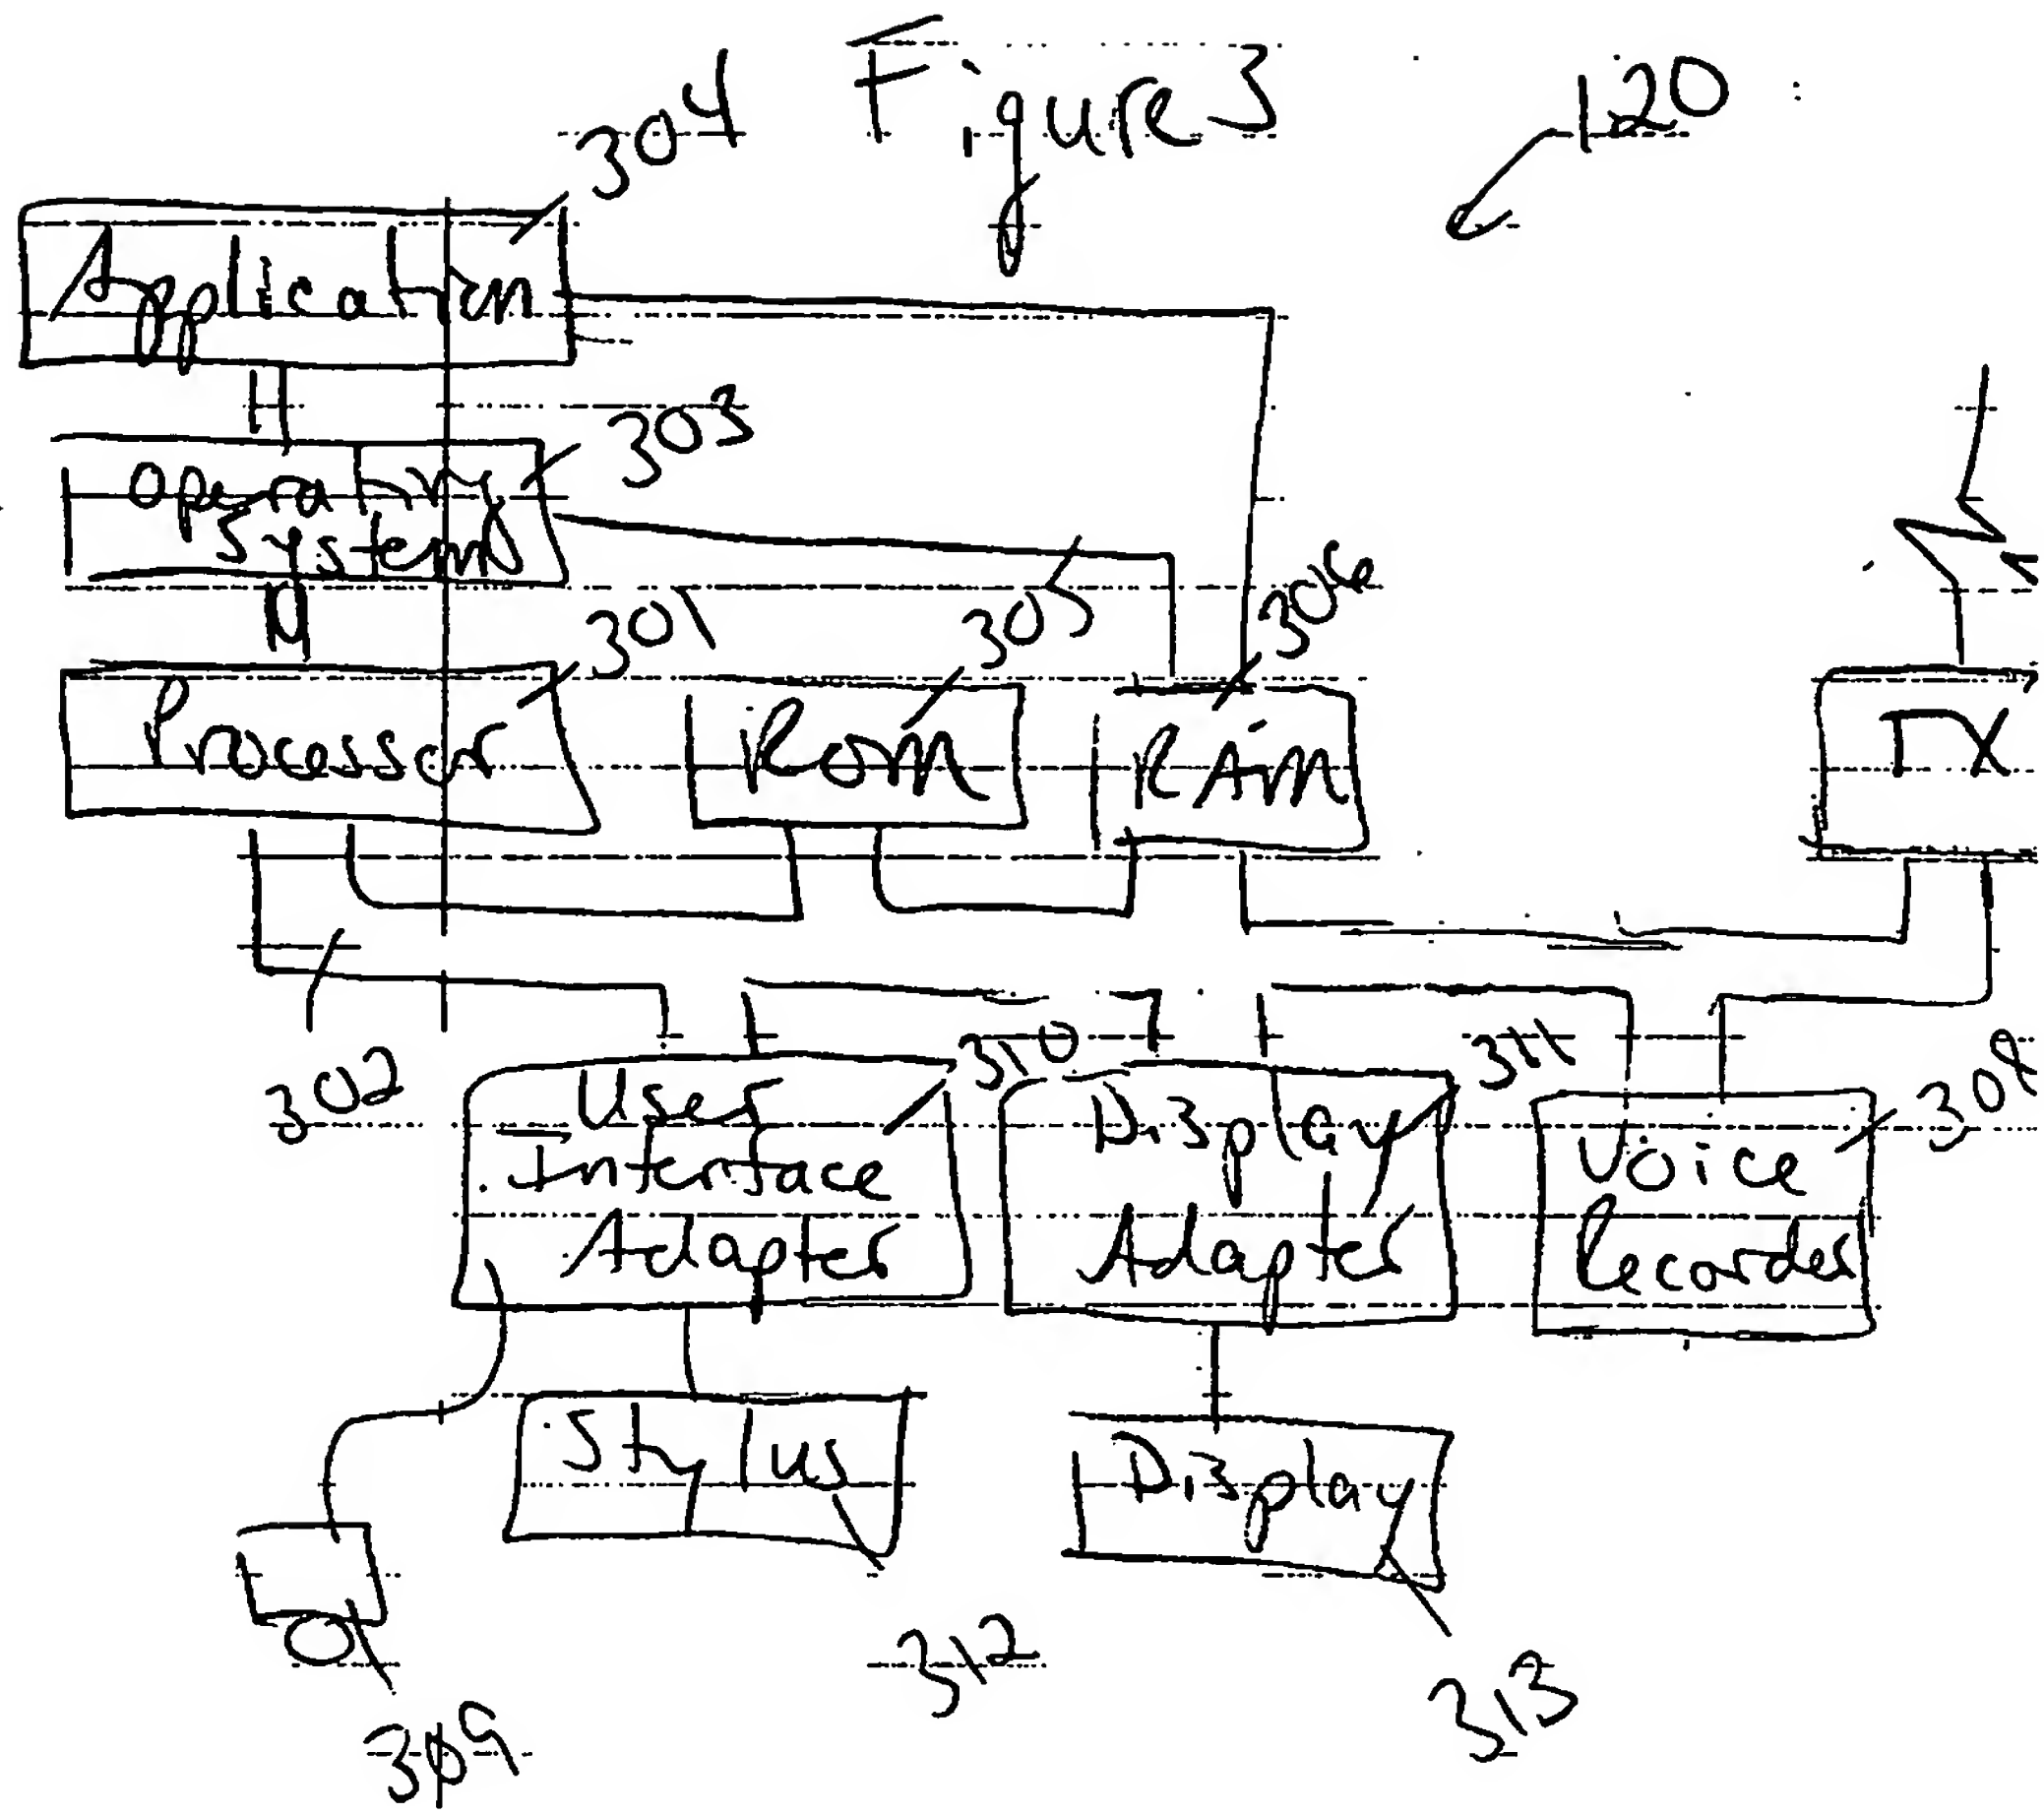 Figure 3
120
304
Application
303
Operating
System
301
305
306
Processor
ROM
RAM
TX
302
310
311
308
User
Interface
Adapter
Display
Adapter
Voice
Recorder
Stylus
Display
312
313
309